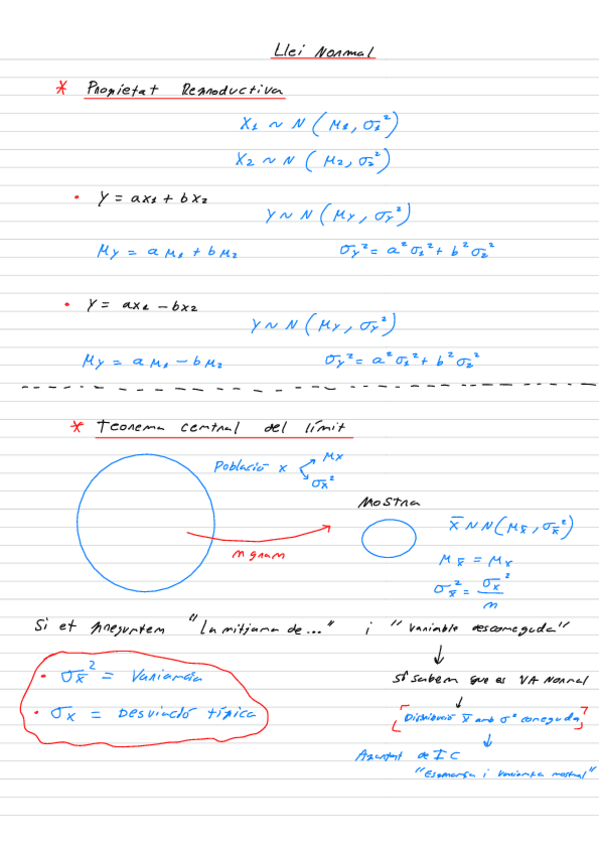 Llei Normal
* Propietat Reproductiva
X₁ ~ N (μ₁, σ₁²)
X₂ ~ N (μ₂, σ₂²)
• Y = ax₁ + bx₂
Y ~ N (μy, σy²)
μy = a μ₁ + b μ₂ σy² = a² σ₁² + b² σ₂²
• Y = ax₁ - bx₂
Y ~ N (μy, σy²)
μy = a μ₁ - b μ₂ σy² = a² σ₁² + b² σ₂²
* Teorema central del límit
Població x μx
σx²
Mostra
n gran
x̄ ~ N (μx̄, σx̄²)
μx̄ = μx
σx̄² = σx² / n
Si et pregunten "La mitjana de..." i "Variable desconeguda"
• σx̄² = Variancia
• σx = Desviació típica
Si sabem que es VA Normal
[Distribució x̄ amb σ² coneguda]
Apartat de IC
"Esperança i variancia mostral"